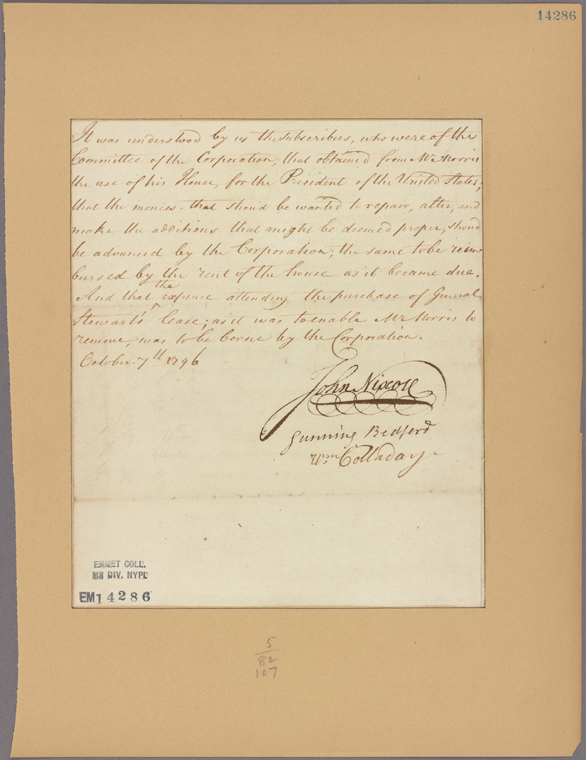 14286
It was understood by us the subscribers, who were of the
Committee of the Corporation, that obtained from Mr Morris
the use of his House, for the President of the United States;
that the monies that should be wanted to repair, alter, and
make the additions that might be deemed proper, should
be advanced by the Corporation; the same to be reim-
bursed by the rent of the house as it became due.
And that the expence attending the purchase of General
Stewart's lease; as it was to enable Mr Morris to
remove, was to be borne by the Corporation.
October 7th 1796
John Nixon
Gunning Bedford
Wm Colladay
EMMET COLL.
MS DIV. NYPL
EM14286
5
82
107